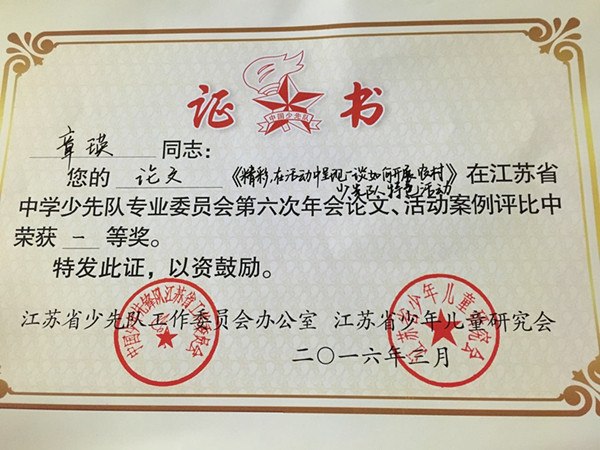 证 书
中国少先队
章瑛 同志：
您的 论文 《精彩，在活动中呈现—谈如何开展农村少先队特色活动》在江苏省
中学少先队专业委员会第六次年会论文、活动案例评比中
荣获 一 等奖。
特发此证，以资鼓励。
江苏省少先队工作委员会办公室 江苏省少年儿童研究会
二〇一六年三月
江苏省少年儿童研究会